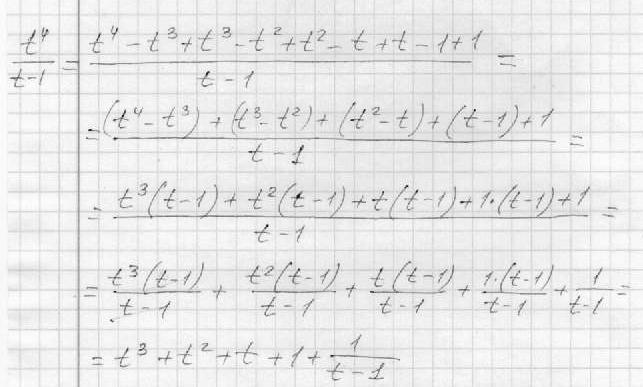 t⁴/(t-1) = (t⁴ - t³ + t³ - t² + t² - t + t - 1 + 1)/(t - 1) =
= ((t⁴ - t³) + (t³ - t²) + (t² - t) + (t - 1) + 1)/(t - 1) =
= (t³(t-1) + t²(t-1) + t(t-1) + 1·(t-1) + 1)/(t - 1) =
= t³(t-1)/(t-1) + t²(t-1)/(t-1) + t(t-1)/(t-1) + 1·(t-1)/(t-1) + 1/(t-1) =
= t³ + t² + t + 1 + 1/(t - 1)